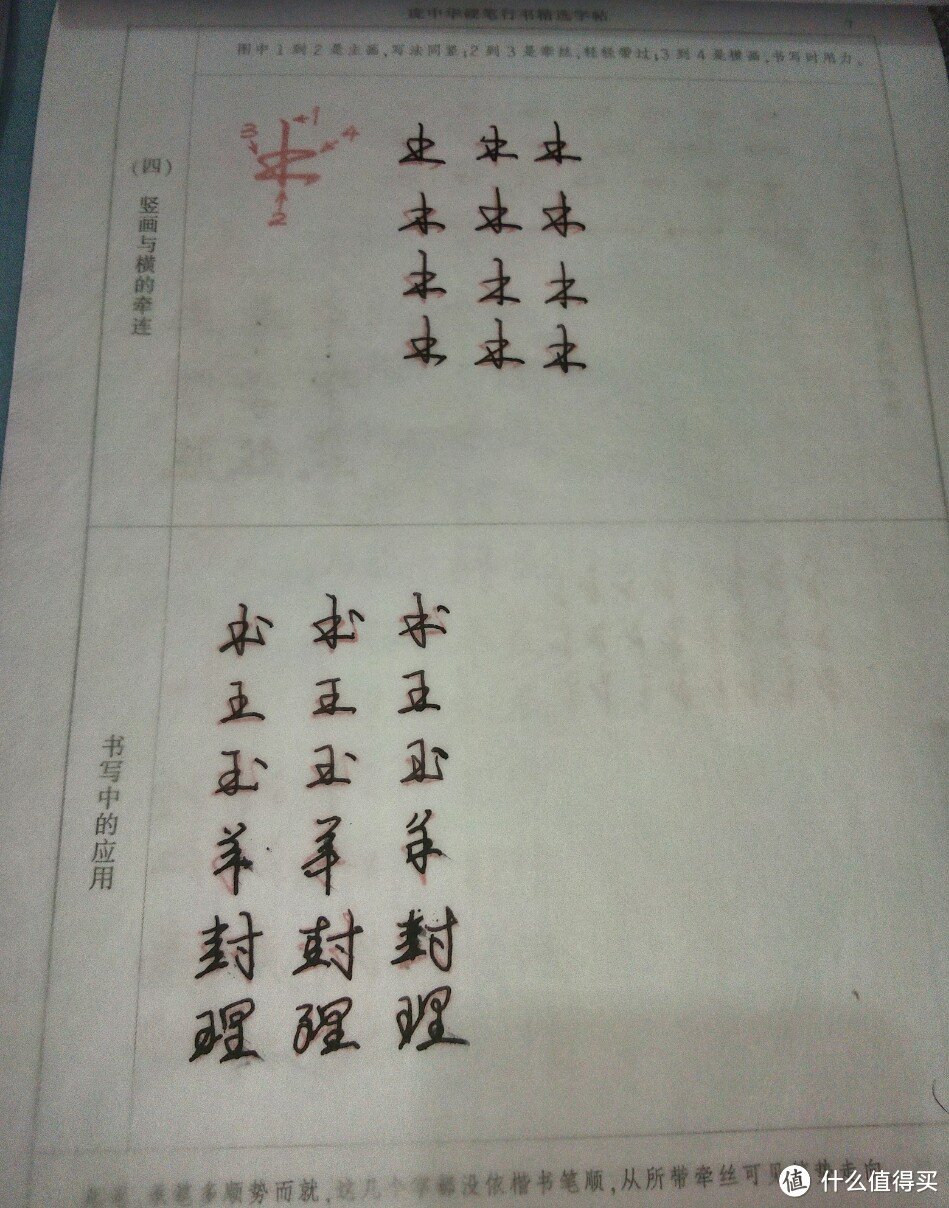 庞中华硬笔行书精选字帖
图中1到2是主画,写法同竖;2到3是牵丝,轻轻带过;3到4是横画,书写时用力。
(四) 竖画与横的牵连
1
3 4
2
书写中的应用
术 术 术
王 王 王
玉 玉 玉
羊 羊 羊
封 封 封
理 理 理
多顺势而就,这几个字都没依楷书笔顺,从所带牵丝可见
值 什么值得买